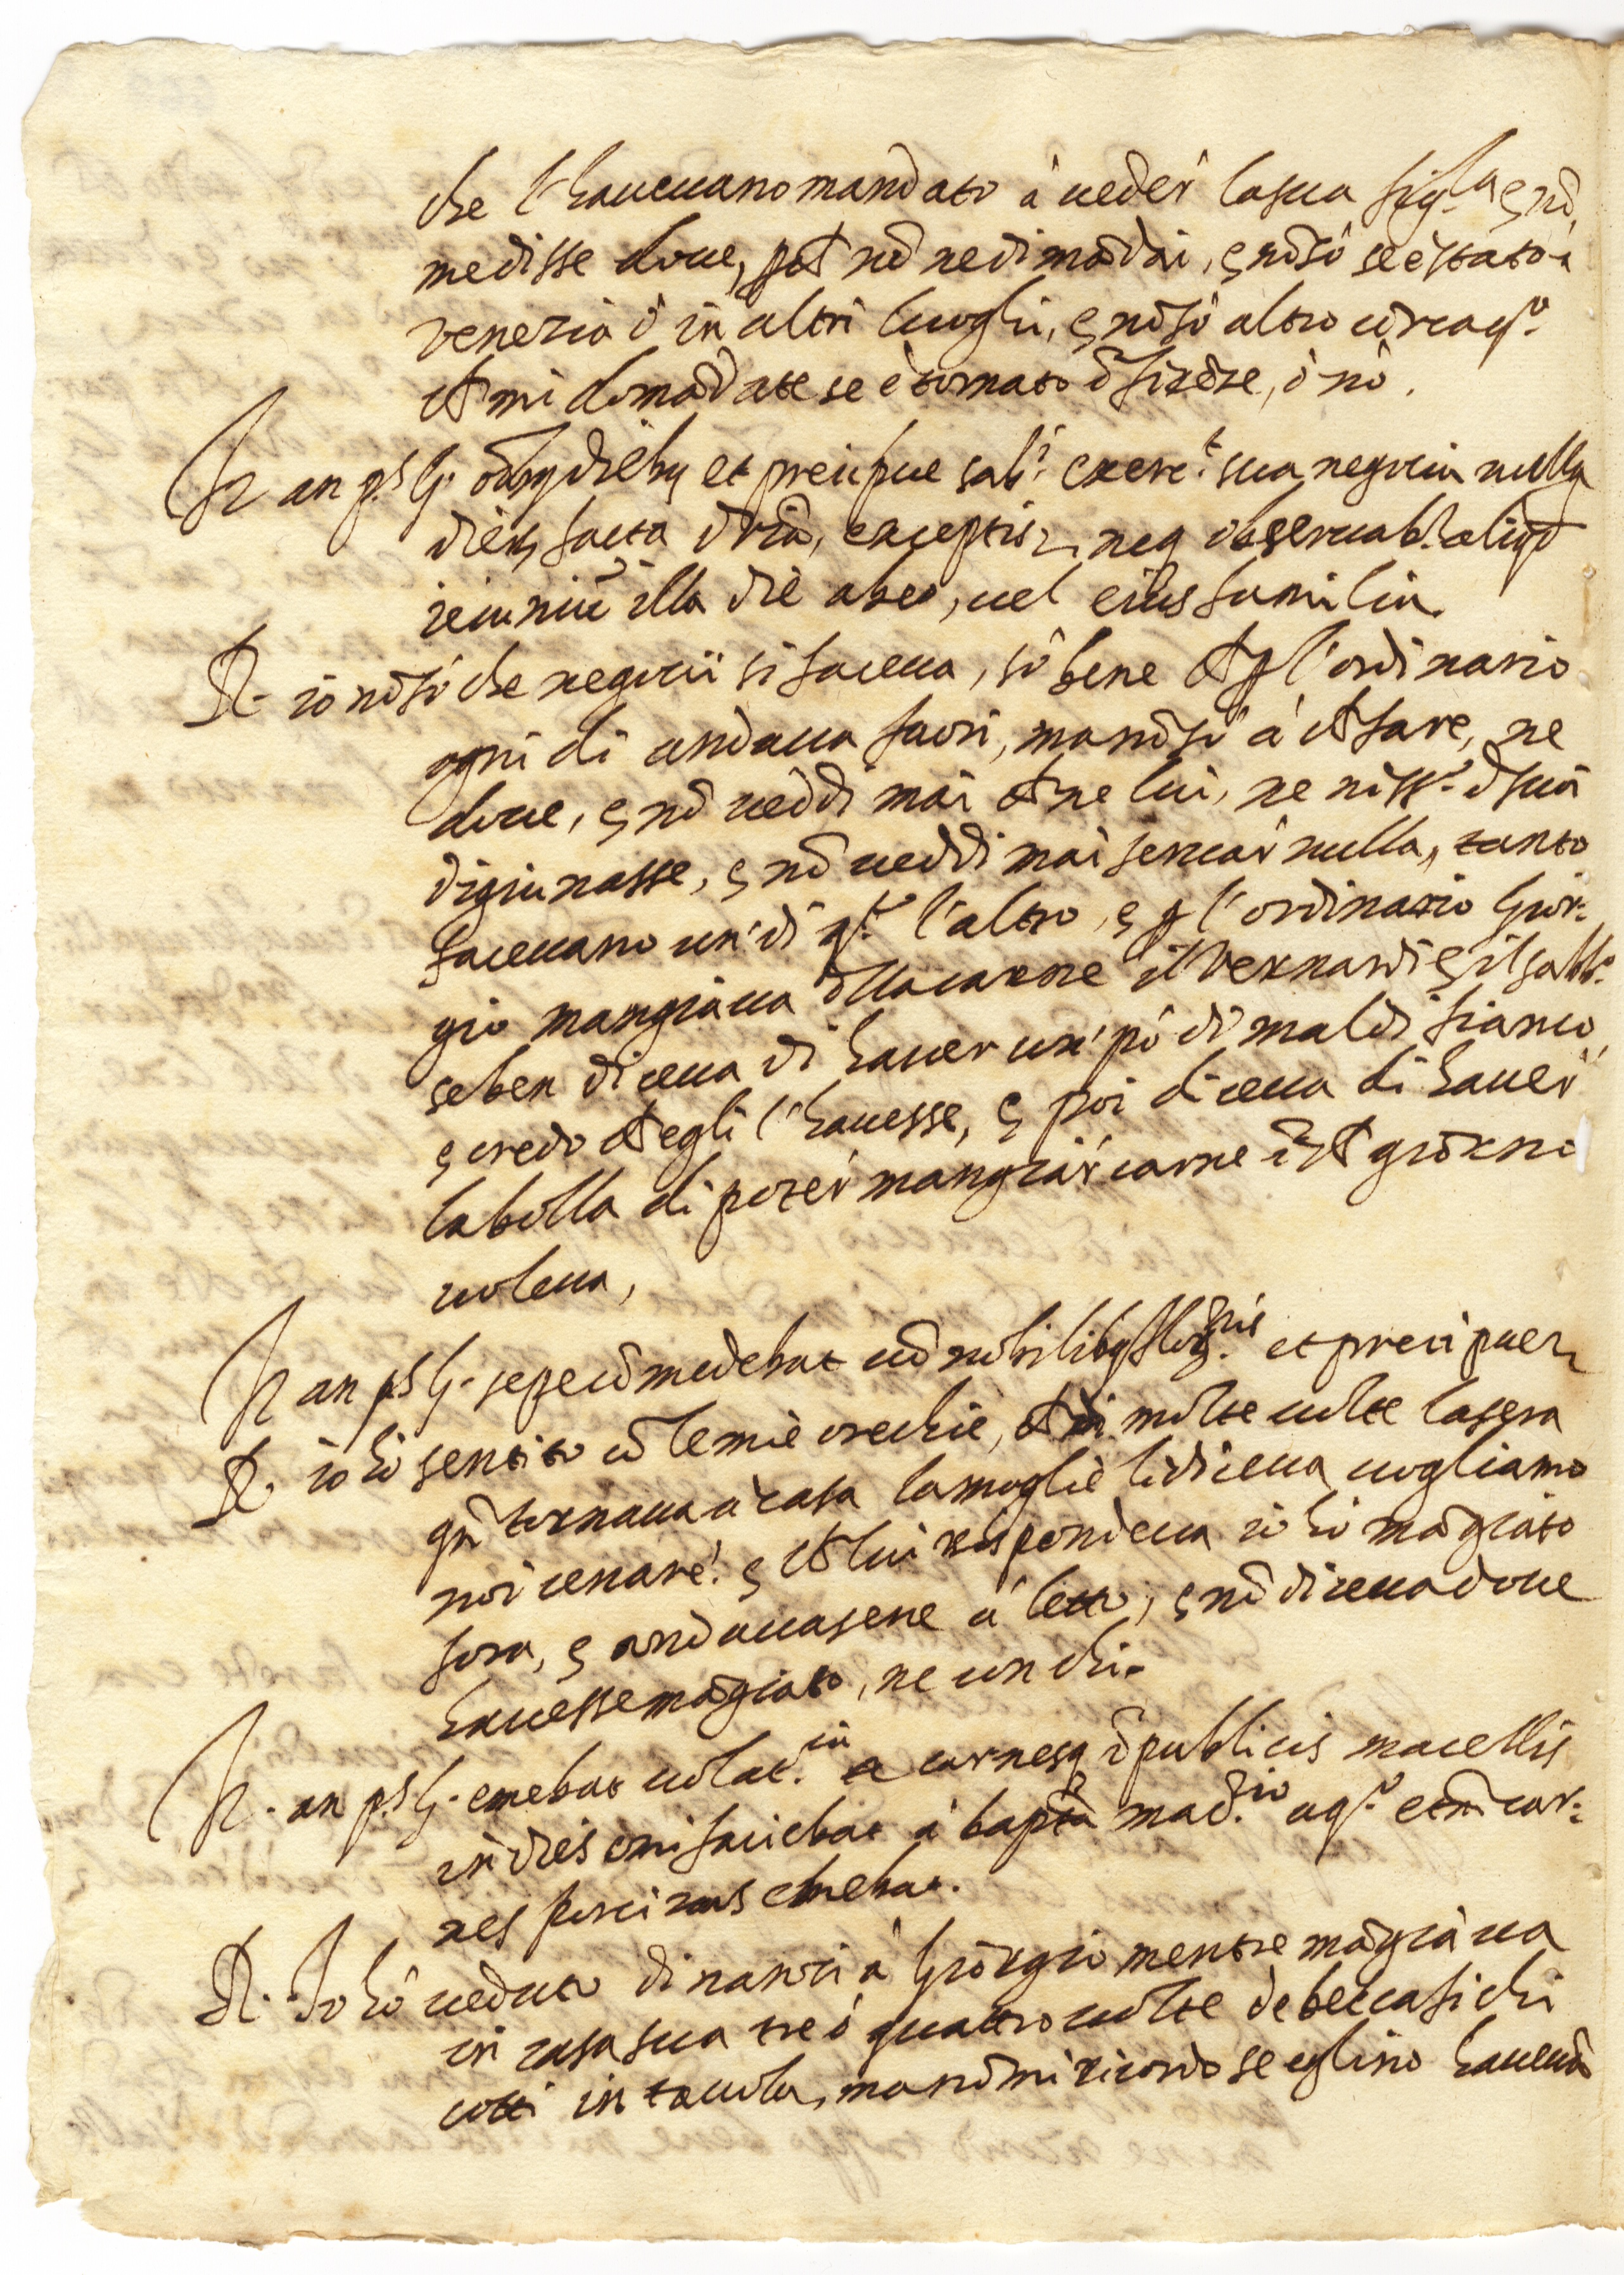 che l'haueuano mandato à ueder la sua fig.la e nō
me disse doue, pche nō ne dimādai, e nōsò se è stato à
venezia ò in altri luoghi, e nōsò altro circa q.o
che mi domādate se è tornato ī firēze, ò nò.
In an p.s G. oībq diebq et precipue sab.i exerc.t sua negocia nulla
dieī facta dr̄ia, exceptis neq obseruab.t aliqd
ieiuniū illa die ab eo, uel eius familia.
R. io nōsò che negocii si faceua, sò bene che p l'ordinario
ogni dì andaua fuori, ma nōsò à che fare, ne
doue, e nō ueddi mai che ne lui, ne niss.o d sua
digiunasse, e nō ueddi mai sencar nulla, tanto
faceuano un' dì q.to l'altro, e p l'ordinario Gior:
gio mangiaua dlla carne il Vernardi e il sabb.o
se ben diceua di hauer un' pò di mal di fianco
e credo che egli l'hauesse, e poi diceua di hauer
la bolla di poter mangiar carne ī che giorno
uoleua,
In an p.s G. sepe comedebat cū nobilibq flor.nis et precipue
R. io hò sentito cō le mie orechie, che molte uolte la sera
qn̄ tornaua à casa la moglie li diceua uogliamo
noi cenare? e che lui rispondeua io hò māgiato
fora, e andauasene à letto, e nō diceua doue
hauesse māgiato, ne con chi.
In. an p.s G. emebat uolat.ia carnesq ī publicis macellis
in dies oni faciebat à bapt̄a mad.io a q.o etm̄ car:
nes porcinas emebat.
R. Io hò ueduto dinanci à Giorgio mentre māgiàua
in casa sua tre ò quattro uolte de beccafichi
cotti in tauola, ma nō mi ricordo se eglino haueuā